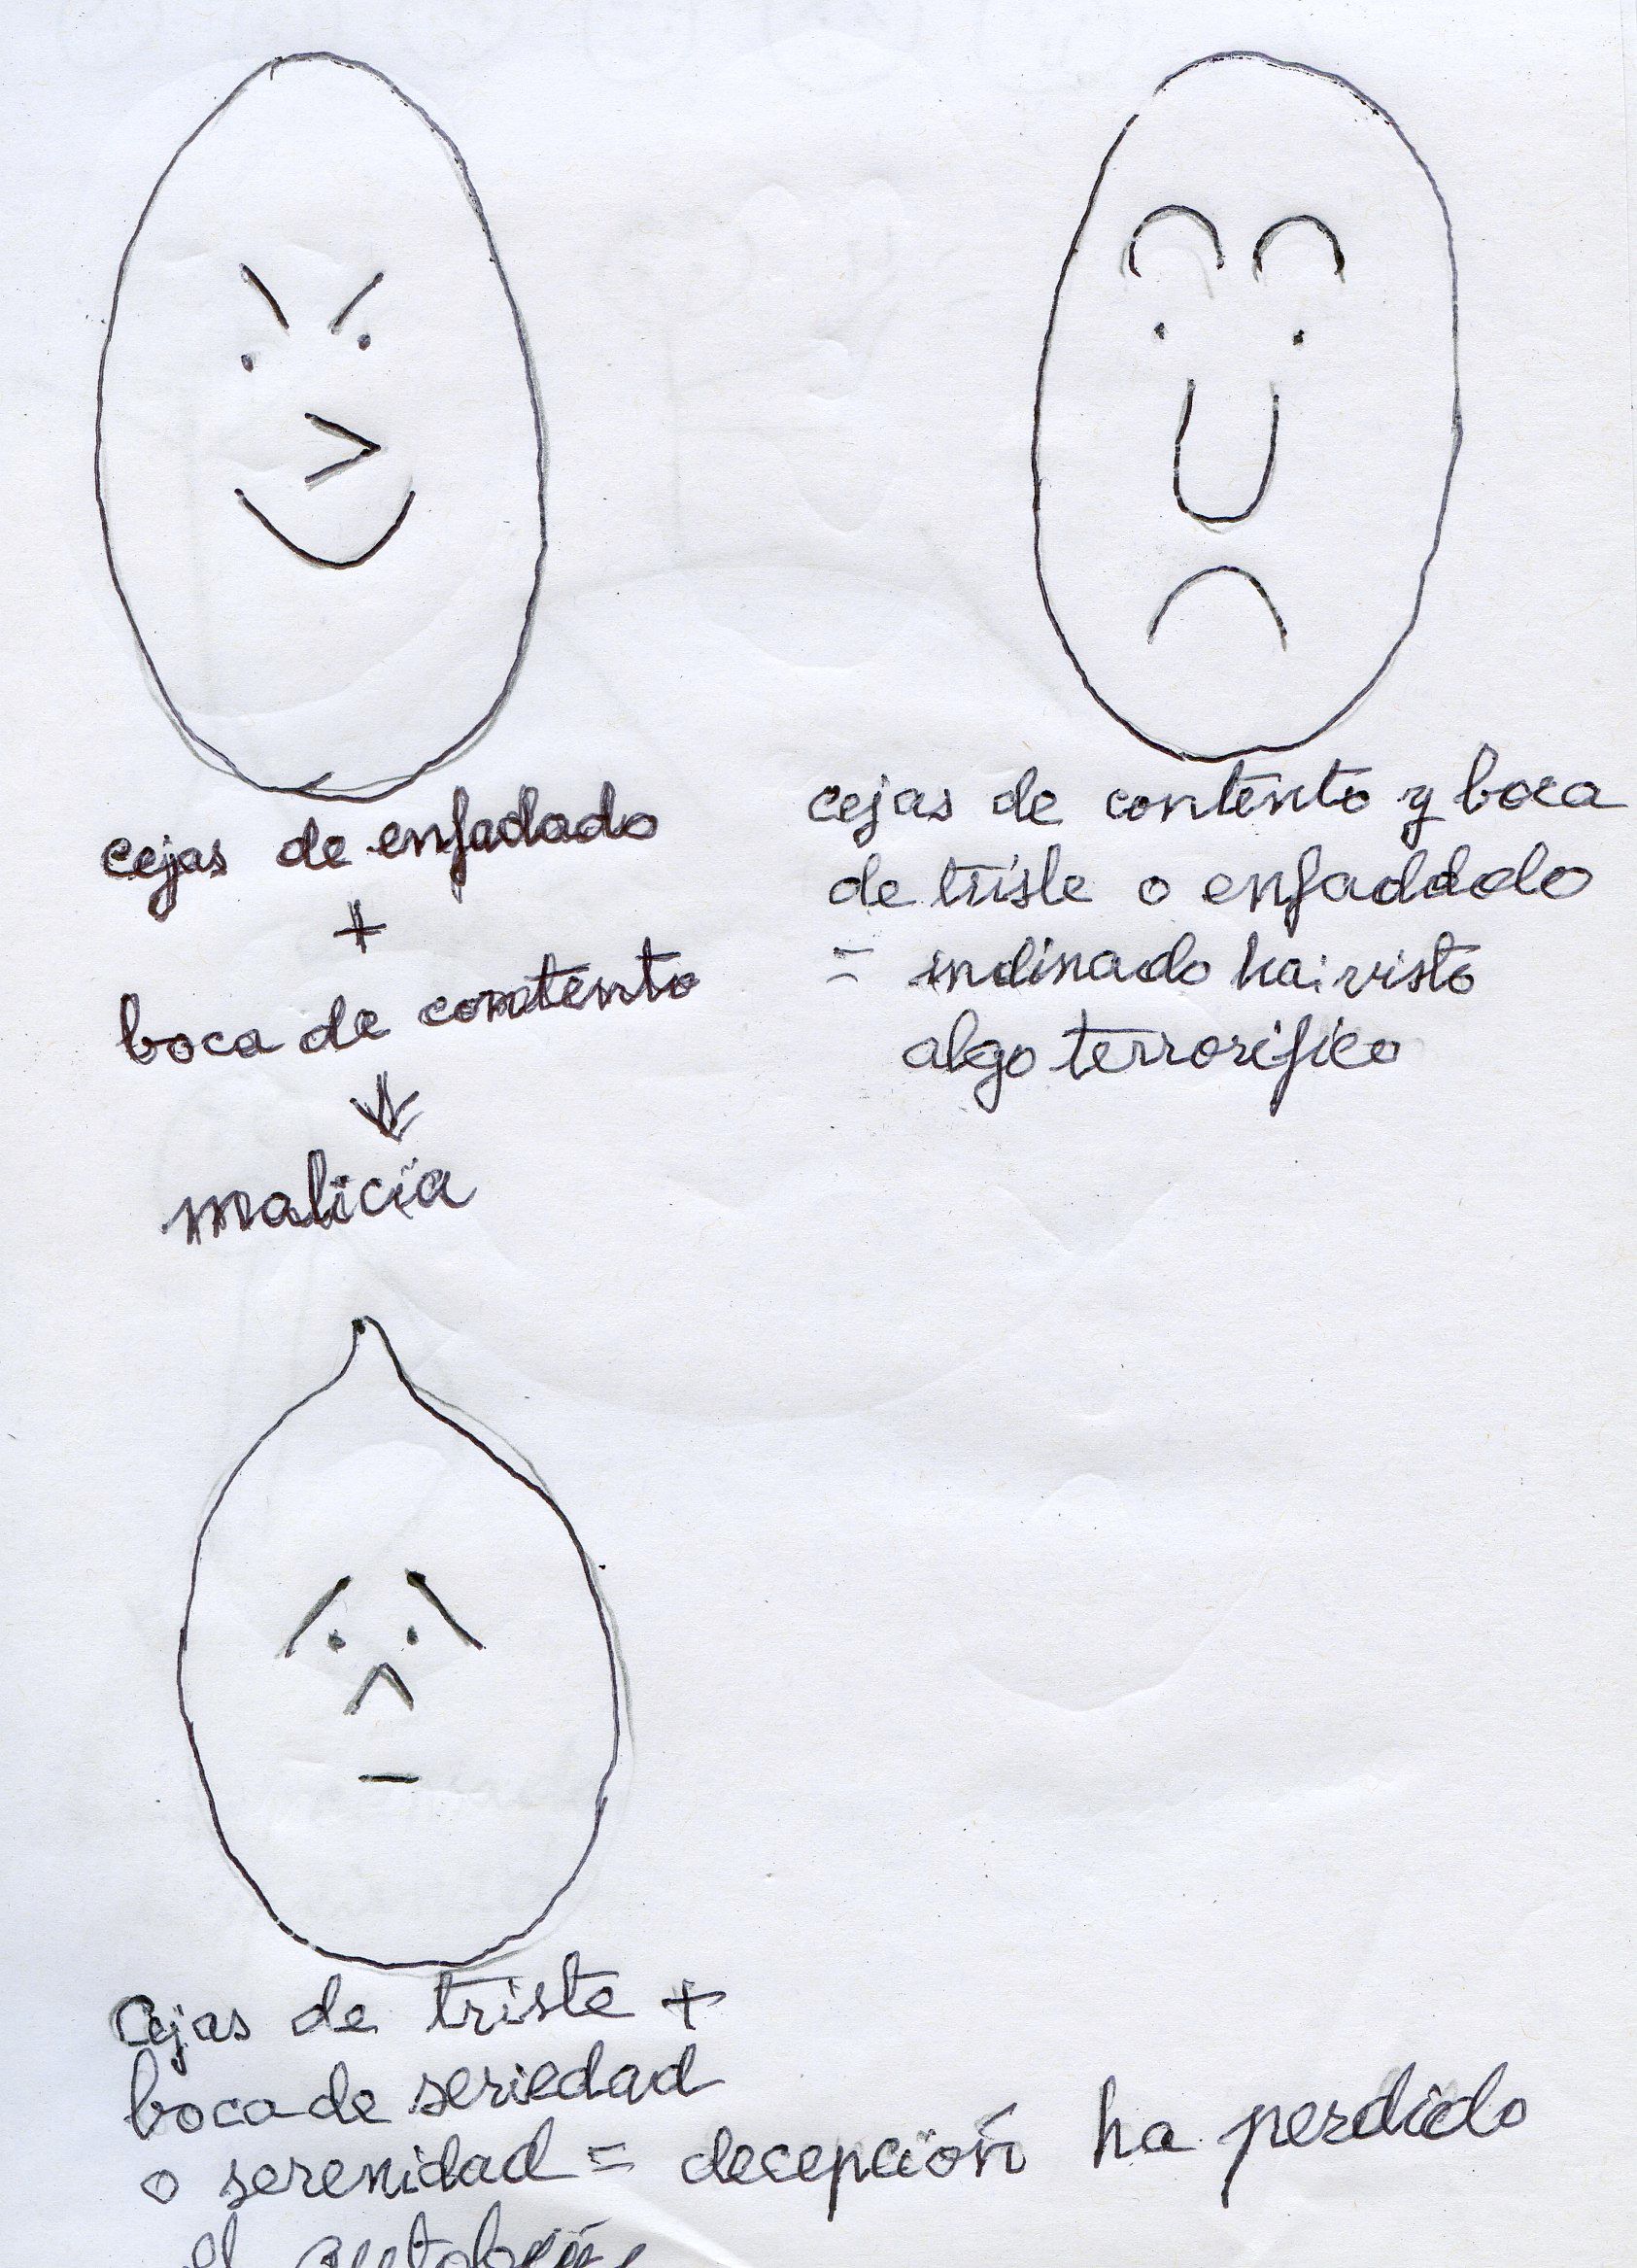 cejas de enfadado
+
boca de contento
↓
malicia
cejas de contento y boca
de triste o enfaddado
= indinado ha visto
algo terrorifico
Cejas de triste +
boca de seriedad
o serenidad = decepción ha perdido
el autobús